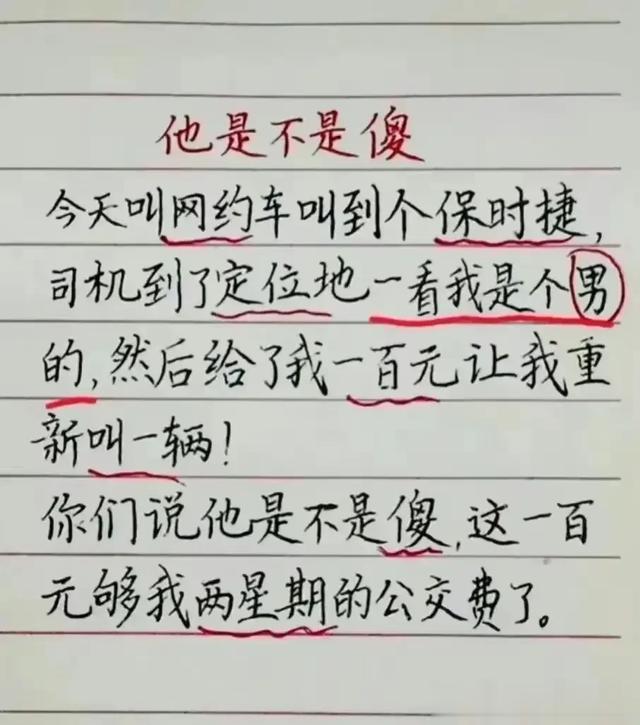 他是不是傻
今天叫网约车叫到个保时捷,
司机到了定位地一看我是个男
的,然后给了我一百元让我重
新叫一辆!
你们说他是不是傻,这一百
元够我两星期的公交费了。